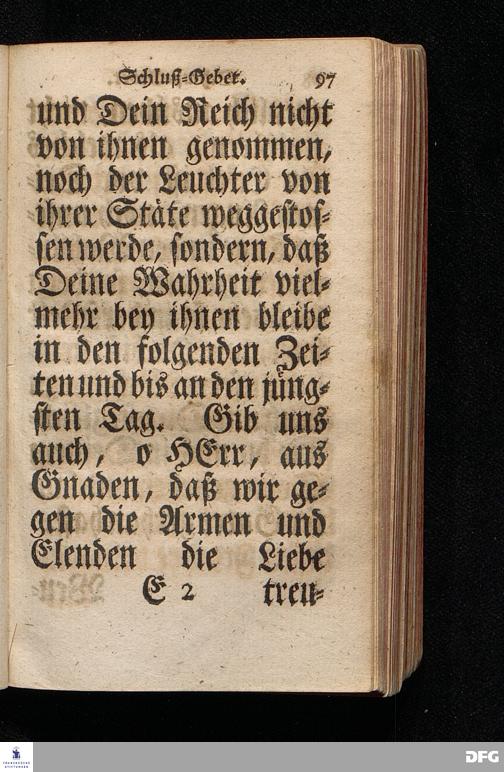 Schluß-Gebet. 97
und Dein Reich nicht
von ihnen genommen,
noch der Leuchter von
ihrer Stäte weggestos-
sen werde, sondern, daß
Deine Wahrheit viel-
mehr bey ihnen bleibe
in den folgenden Zei-
ten und bis an den jüng-
sten Tag. Gib uns
auch, o HErr, aus
Gnaden, daß wir ge-
gen die Armen und
Elenden die Liebe
E 2 treu-
FRANCKESCHE
STIFTUNGEN
DFG